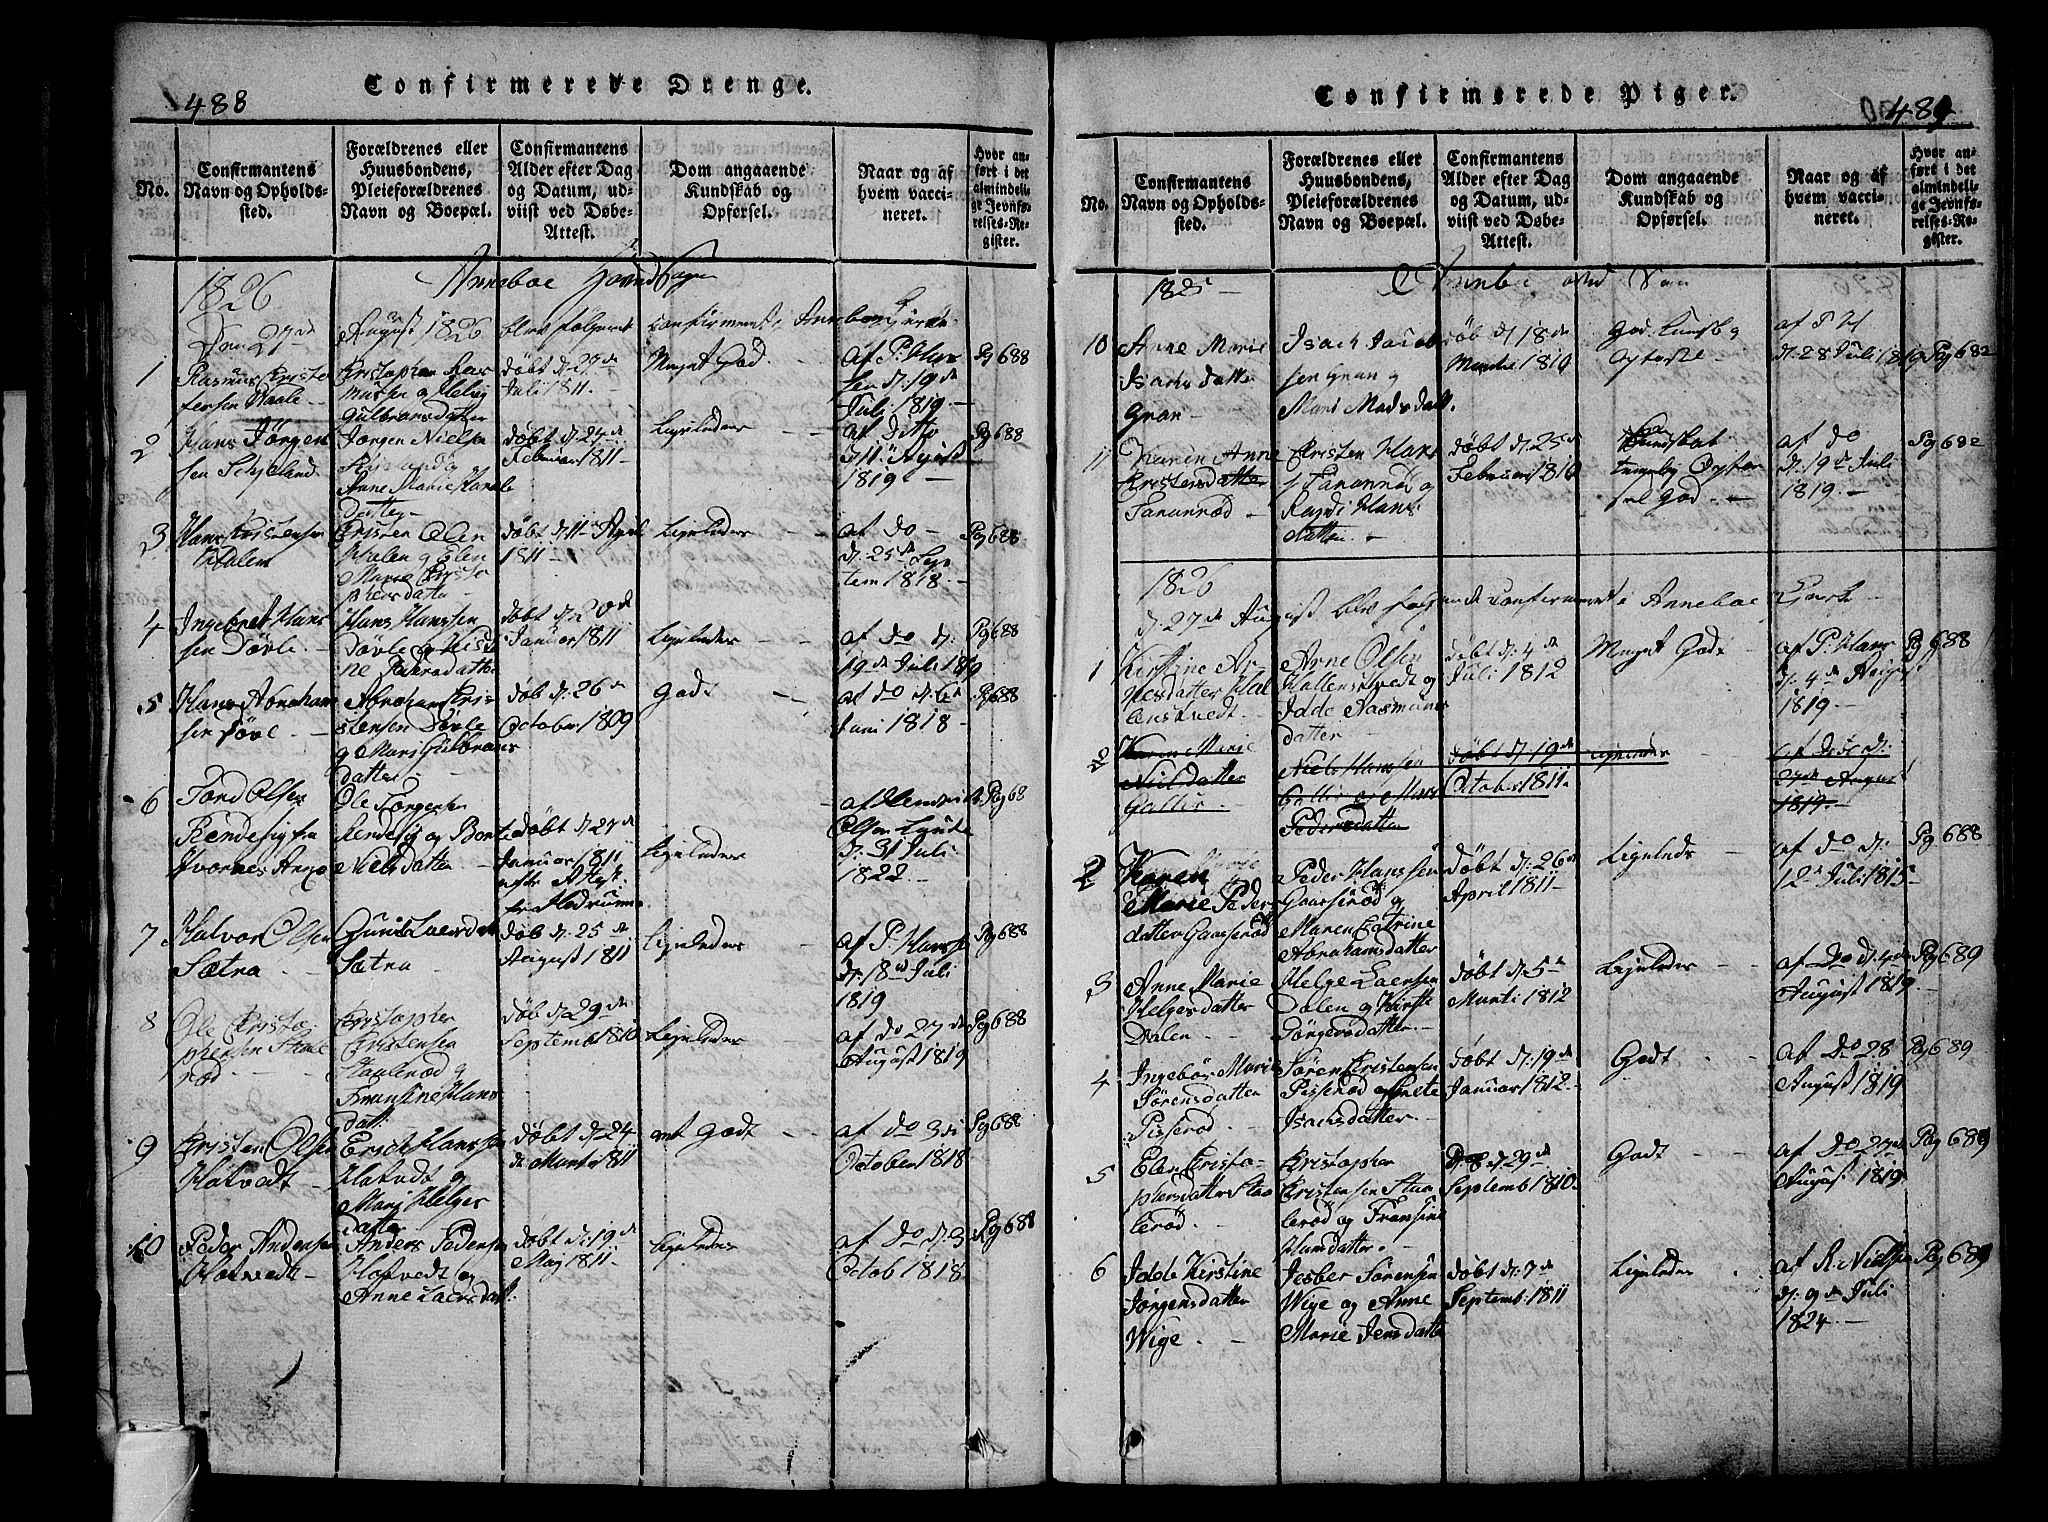 488
Confirmerede Drenge.
No.
Confirmantens
Navn og Opholds-
sted.
Forældrenes eller
Huusbondens,
Pleieforældrenes
Navn og Boepæl.
Confirmantens
Alder efter Dag
og Datum, ud-
viist ved Døbe-
Attest.
Dom angaaende
Kundskab og
Opførsel.
Naar og af
hvem vacci-
neret.
Hvor an-
ført i det
almindeli-
ge Jevnfø-
relses-Re-
gister.
1826
Anneboe
Den 27de August 1826 blev følgende confirmeret i Anneboe
1
Rasmus Cristo
fersen
Cristopher Ras
mussen og Helvig
Gulbransdatter
døbt d. 27de
Juli 1811.
Meget God.
af P. Han
sen d. 19de
Juli 1819.
Pg 688
2
Hans Jørgen
sen
Jørgen Nielsen
og
Anne Marie
datter
døbt d. 24de
Februar 1811
Ligeledes
af ditto
d. 11te August
1819
Pg 688
3
Hans Cristensen
Dalen
Cristen Olsen
Dalen og Elen
Marie Cristo
phersdatter
døbt d. 11te April
1811
Ligeledes
af do
d. 25de Sep
tem 1818.
Pg 688
4
Ingebret Han
sen Døvle
Hans Hanssen
Døvle og Kirsti
ne Pedersdatter
døbt d. 20de
Januar 1811
Ligeledes
af do d.
19de Juli 1819
Pg 688
5
Hans Abraham
sen Døvl.
Abraham Cris
tensen Døvle
og Mari Gulbrans
datter
døb d. 26de
October 1809
Godt
af do d. 6te
Juni 1818
Pg 688
6
Tord Olsen
Ole Jørgensen
og
Nielsdatter
døbt d. 27de
Januar 1811
efter Attest
fra Hedrum
Ligeledes
af Hendrik
Olsen
d. 31 Juli
1822.
Pg 68
7
Halvor Olsen
Sætra
Gunil Laersdat
Sætra
døb d. 25de
August 1811
Ligeledes
af P. Hansen
d. 18de Juli
1819
Pg 688
8
Ole Cristo
phersen Stale
rød
Cristopher
Cristensen
Stalerød og
Fransine Hans
datt.
døb d. 29de
Septemb 1810
Ligeledes
af do 27de
August 1819
Pg 688
9
Cristen Olsen
Hotvedt
Erich Hanssen
Hotvedt og
Mari Helges
datter
døbt d. 24
de Marti 1811
mt Godt
af do 3di
October 1818
Pg 688
10
Peder Andersen
Hotvedt
Anders Pedersen
Hotvedt og
Anne Laersdatt.
døbt d. 19de
Maj 1811
Ligeledes
af do d. 3
Octob 1818
Pg 688
Confirmerede Piger.
489
No.
Confirmantens
Navn og Opholds-
sted.
Forældrenes eller
Huusbondens,
Pleieforældrenes
Navn og Boepæl.
Confirmantens
Alder efter Dag
og Datum, ud-
viist ved Døbe-
Attest.
Dom angaaende
Kundskab og
Opførsel.
Naar og af
hvem vacci-
neret.
Hvor an-
ført i det
almindeli-
ge Jevnfø-
relses-Re-
gister.
1825
10
Anne Marie
Isachsdatter
Gran
Isach Jacob
sen Gran og
Mari Madsdatt.
døb d. 18de
Martii 1810
God Kundsk og
Opførsel
af P H
d. 28 Juli 1819
Pg 682
11
Maren Anne
Cristensdatter
Cristen Hans
og
Randi Hans
datter
døbt d. 25de
Februar 1810
Kundskab
Opfør
sel God
af do
d. 19de Juli
1819.
Pg 682
1826
d. 27de August blev følgende Confirmeret i Anneboe Kirke
1
Kirstine Ar
nesdatter Hal
lenskvedt
Arne Olsen
Hallenskvedt og
Idde Rasmus
datter
døbt d. 4de
Juli 1812
Meget Godt
af P. Hans
d. 4de August
1819.
Pg 688
2
Karen Marie
Nielsdatter
Galtis
Niels Hanssen
Galtis og Mari
Pedersdatter
døbt d. 19de
October 1811.
Ligeledes
af do d.
27de August
1819
2
Karen
Marie Peders
datter Gaaserød
Peder Hanssen
Gaaserød og
Maren Catrine
Abrahamsdatter
døbt d. 26de
April 1811
Ligeleds
af do d.
12te Juli 1815
Pg 688
3
Anne Marie
Helgesdatter
Dalen
Helge Laersen
Dalen og Kirsti
Jørgensdatter
døbt d. 5te
Marti 1812
Ligeledes
af do d. 4de
August 1819.
Pg 689
4
Ingebør Marie
Sørensdatter
Pisserød.
Søren Cristensen
Pisserød og Grete
Isachsdatter.
døbt d. 19de
Januar 1812.
Godt
af do 28
August 1819
Pg 689
5
Elen Cristo-
phersdatter Staa
lerød.
Cristopher
Cristensen Staa
lerød og Fransine
Hansdatter.
d. 29de
Septemb 1810.
Godt
af do 27de
August 1819.
Pag 689
6
Idde Kirstine
Jørgensdatter
Wige.
Jesber Sørensen
Wige og Anne
Marie Jensdatter
døbt d. 7de
Septemb. 1811
Ligeledes
af R. Nielsen
d. 9de Juli
1824.
Pag 689